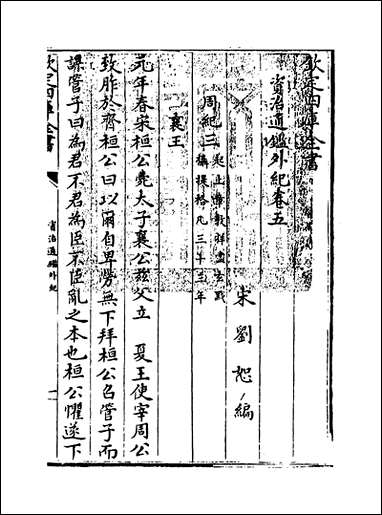 欽定四庫全書
資治通鑑外紀卷五
宋 劉恕 編
周紀三
起上章執徐盡玄黓
攝提格凡三十三年
襄王
元年春宋桓公薨太子襄公兹父立 夏王使宰周公
致胙於齊桓公曰以爾自卑勞無下拜桓公召管子而
謀管子曰為君不君為臣不臣亂之本也桓公懼遂下
欽定四庫全書
資治通鑑外紀
一